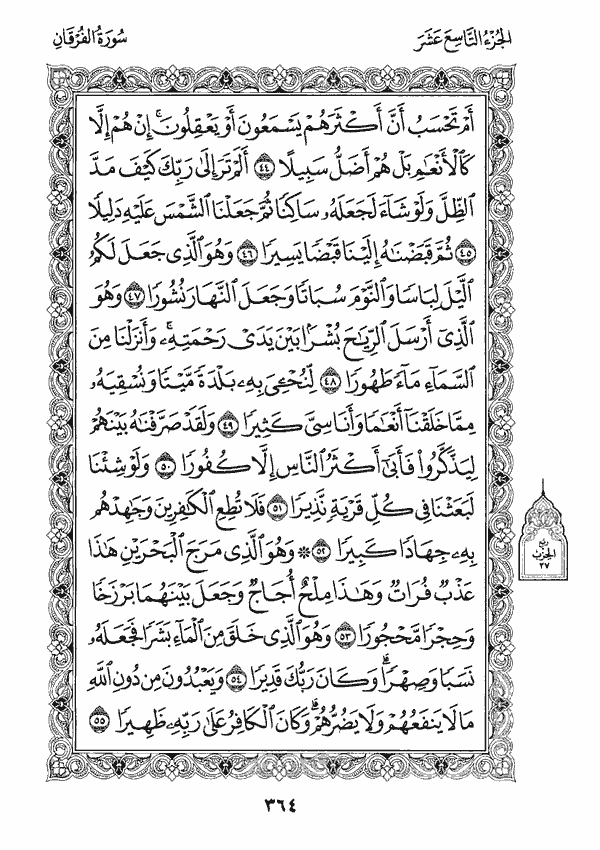 الجزء التاسع عشر
سورة الفرقان
أَمْ تَحْسَبُ أَنَّ أَكْثَرَهُمْ يَسْمَعُونَ أَوْ يَعْقِلُونَ ۚ إِنْ هُمْ إِلَّا
كَالْأَنْعَٰمِ بَلْ هُمْ أَضَلُّ سَبِيلًا ٤٤ أَلَمْ تَرَ إِلَىٰ رَبِّكَ كَيْفَ مَدَّ
ٱلظِّلَّ وَلَوْ شَآءَ لَجَعَلَهُۥ سَاكِنًا ثُمَّ جَعَلْنَا ٱلشَّمْسَ عَلَيْهِ دَلِيلًا
٤٥ ثُمَّ قَبَضْنَٰهُ إِلَيْنَا قَبْضًا يَسِيرًا ٤٦ وَهُوَ ٱلَّذِى جَعَلَ لَكُمُ
ٱلَّيْلَ لِبَاسًا وَٱلنَّوْمَ سُبَاتًا وَجَعَلَ ٱلنَّهَارَ نُشُورًا ٤٧ وَهُوَ
ٱلَّذِىٓ أَرْسَلَ ٱلرِّيَٰحَ بُشْرًۢا بَيْنَ يَدَىْ رَحْمَتِهِۦ ۚ وَأَنزَلْنَا مِنَ
ٱلسَّمَآءِ مَآءً طَهُورًا ٤٨ لِّنُحْۦِىَ بِهِۦ بَلْدَةً مَّيْتًا وَنُسْقِيَهُۥ
مِمَّا خَلَقْنَآ أَنْعَٰمًا وَأَنَاسِىَّ كَثِيرًا ٤٩ وَلَقَدْ صَرَّفْنَٰهُ بَيْنَهُمْ
لِيَذَّكَّرُوا۟ فَأَبَىٰٓ أَكْثَرُ ٱلنَّاسِ إِلَّا كُفُورًا ٥٠ وَلَوْ شِئْنَا
لَبَعَثْنَا فِى كُلِّ قَرْيَةٍ نَّذِيرًا ٥١ فَلَا تُطِعِ ٱلْكَٰفِرِينَ وَجَٰهِدْهُم
بِهِۦ جِهَادًا كَبِيرًا ٥٢ ۞ وَهُوَ ٱلَّذِى مَرَجَ ٱلْبَحْرَيْنِ هَٰذَا
عَذْبٌ فُرَاتٌ وَهَٰذَا مِلْحٌ أُجَاجٌ وَجَعَلَ بَيْنَهُمَا بَرْزَخًا
وَحِجْرًا مَّحْجُورًا ٥٣ وَهُوَ ٱلَّذِى خَلَقَ مِنَ ٱلْمَآءِ بَشَرًا فَجَعَلَهُۥ
نَسَبًا وَصِهْرًا ۗ وَكَانَ رَبُّكَ قَدِيرًا ٥٤ وَيَعْبُدُونَ مِن دُونِ ٱللَّهِ
مَا لَا يَنفَعُهُمْ وَلَا يَضُرُّهُمْ ۗ وَكَانَ ٱلْكَافِرُ عَلَىٰ رَبِّهِۦ ظَهِيرًا ٥٥
ربع
الحزب
٣٧
٣٦٤